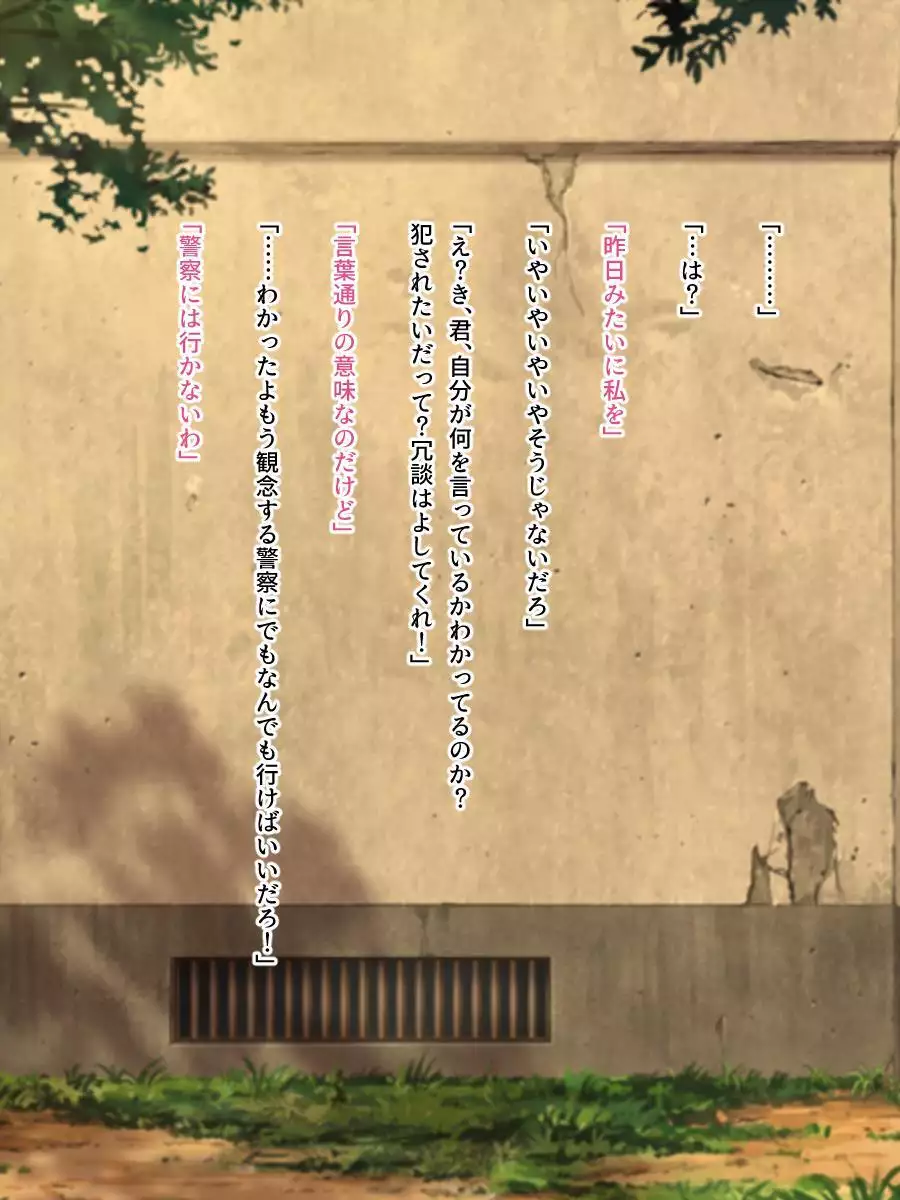 「………」
「…は？」
「昨日みたいに私を」
「いやいやいやいやそうじゃないだろ」
「え？き、君、自分が何を言っているかわかってるのか？
犯されたいだって？冗談はよしてくれ！」
「言葉通りの意味なのだけど」
「……わかったよもう観念する警察にでもなんでも行けばいいだろ！」
「警察には行かないわ」